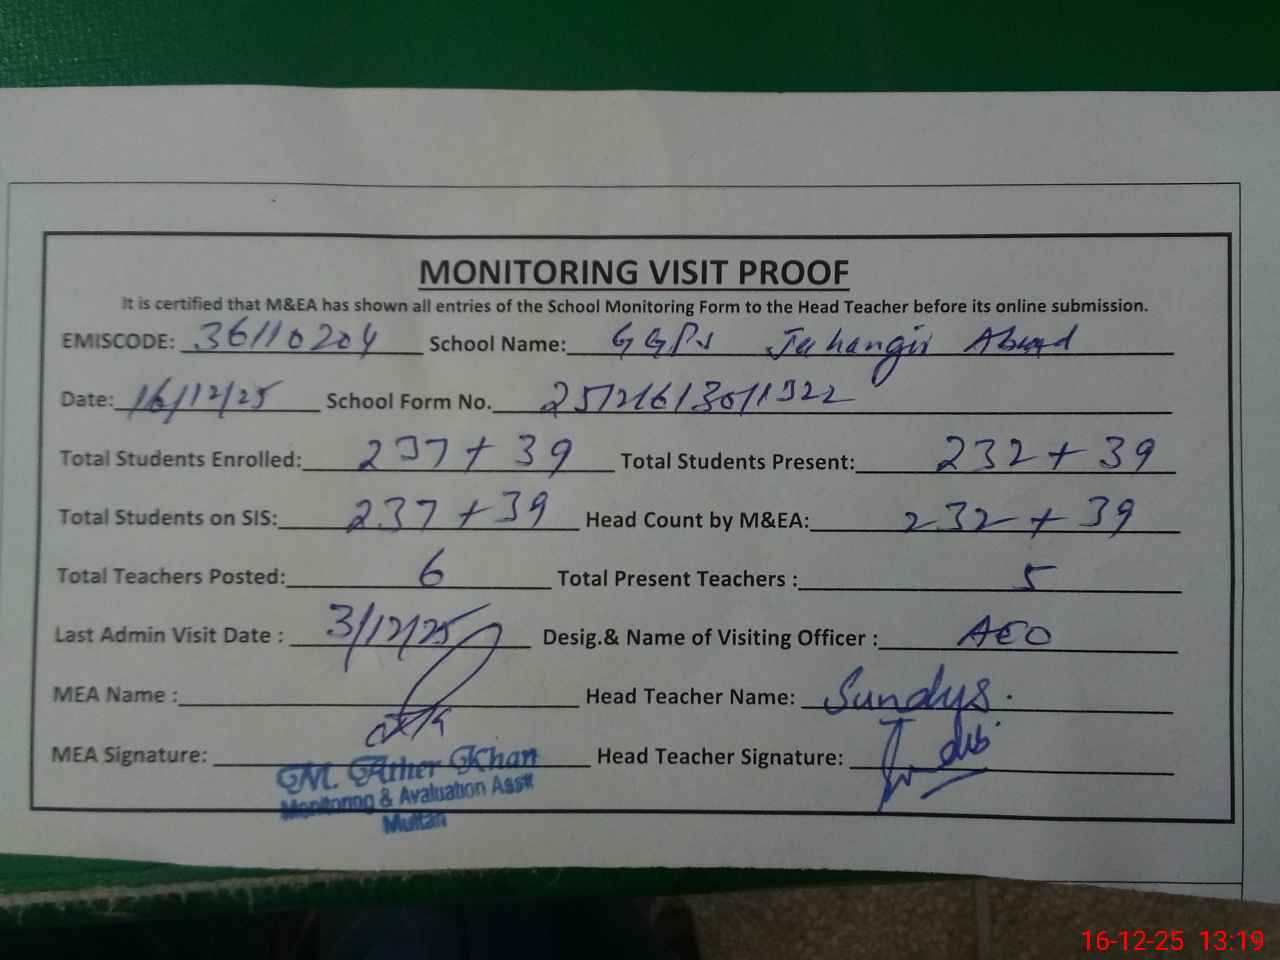 MONITORING VISIT PROOF
It is certified that M&EA has shown all entries of the School Monitoring Form to the Head Teacher before its online submission.
EMISCODE: 36110204 School Name: GGPS Jahangir Abad
Date: 16/12/25 School Form No.
Total Students Enrolled: 237 + 39 Total Students Present: 232 + 39
Total Students on SIS: 237 + 39 Head Count by M&EA: 232 + 39
Total Teachers Posted: 6 Total Present Teachers : 5
Last Admin Visit Date : 3/12/25 Desig.& Name of Visiting Officer : AEO
MEA Name : Head Teacher Name: Sundus.
MEA Signature: Head Teacher Signature:
M. Ather Khan
Monitoring & Avaluation Asstt
Multan
16-12-25 13:19